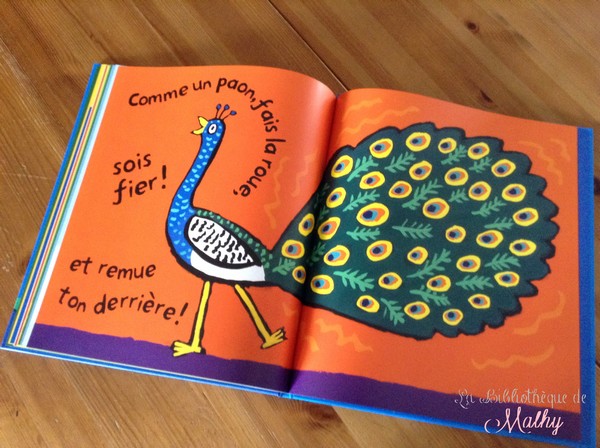 Comme un paon, fais la roue,
sois
fier!
et remue
ton derrière!
La Bibliothèque de
Malhy